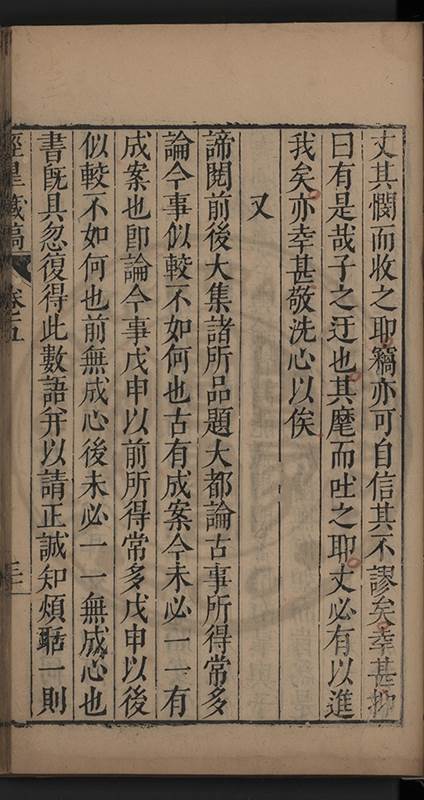 丈其憫而收之耶竊亦可自信其不謬矣幸甚抑
曰有是哉子之迂也其麾而吐之耶丈必有以進
我矣亦幸甚敬洗心以俟
又
諦閱前後大集諸所品題大都論古事所得常多
論今事似較不如何也古有成案今未必一一有
成案也卽論今事戊申以前所得常多戊申以後
似較不如何也前無成心後未必一一無成心也
書旣具忽復得此數語并以請正誠知煩聒一則
涇臯藏稿 卷五